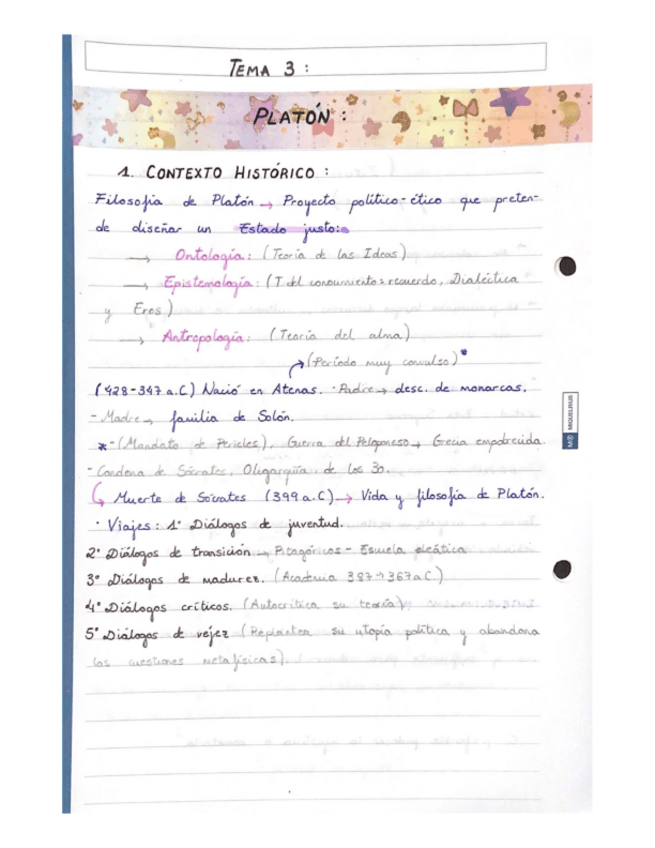 TEMA 3 :
PLATÓN :
1. CONTEXTO HISTÓRICO :
Filosofía de Platón → Proyecto político-ético que preten-
de diseñar un Estado justo:
→ Ontología: (Teoría de las Ideas)
→ Epistemología: (T. del conocimiento = recuerdo, Dialéctica
y Eros)
→ Antropología: (Teoría del alma)
(Período muy convulso)*
(428-347 a.C) Nació en Atenas. · Padre → desc. de monarcas.
- Madre → familia de Solón.
* - (Mandato de Pericles), Guerra del Peloponeso → Grecia empobrecida
- Condena de Sócrates, Oligarquía de los 30.
↳ Muerte de Sócrates (399 a.C) → Vida y filosofía de Platón.
· Viajes: 1º Diálogos de juventud.
2º Diálogos de transición → Pitagóricos - Escuela eleática
3º Diálogos de madurez. (Academia 387→367 a.C.)
4º Diálogos críticos. (Autocrítica su teoría)
5º Diálogos de vejez (Replantea su utopía política y abandona
las cuestiones metafísicas).
MIQUELRIUS